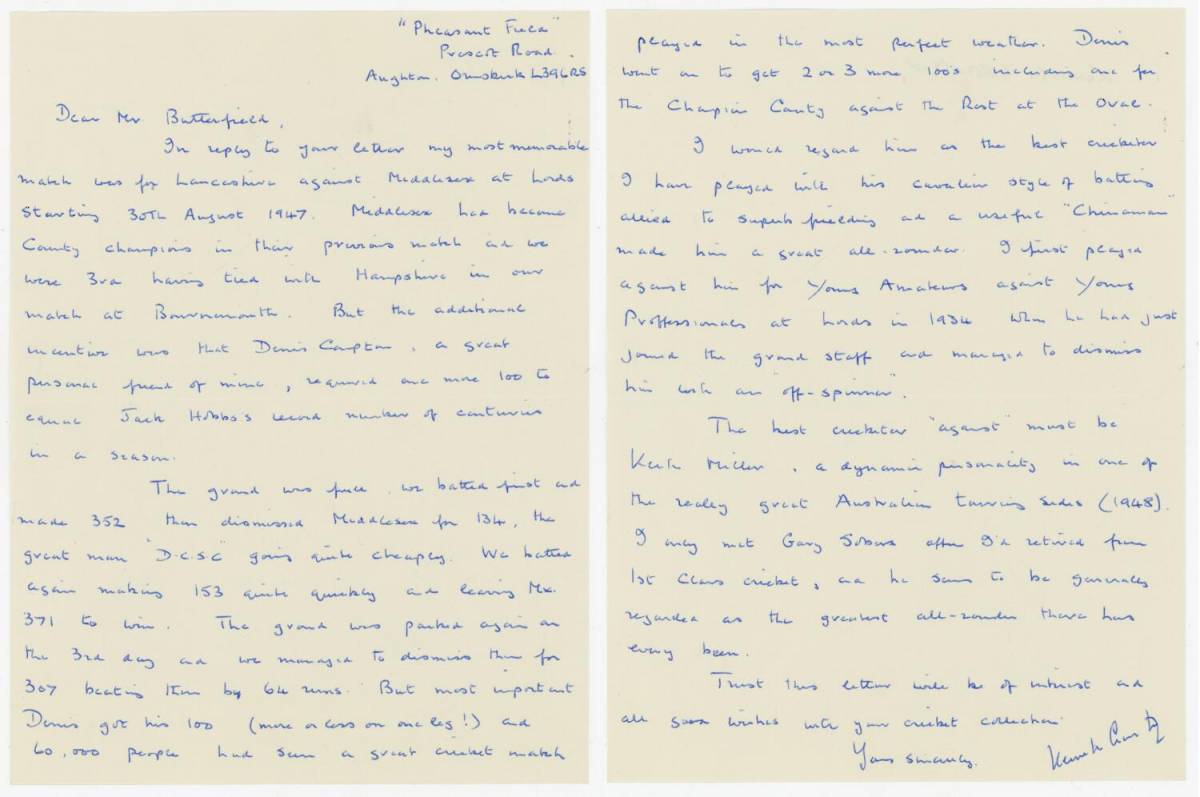 "Pheasant Field"
Prescot Road.
Aughton. Ormskirk L39 6RS
Dear Mr Butterfield,
In reply to your letter my most memorable
match was for Lancashire against Middlesex at Lords
starting 30th August 1947. Middlesex had become
County champions in their previous match and we
were 3rd having tied with Hampshire in our
match at Bournemouth. But the additional
incentive was that Denis Compton, a great
personal friend of mine, required one more 100 to
equal Jack Hobbs's record number of centuries
in a season.
The ground was full. we batted first and
made 352 then dismissed Middlesex for 134, the
great man "D.C.S.C" going quite cheaply. We batted
again making 153 quite quickly and leaving Mx.
371 to win. The ground was packed again on
the 3rd day and we managed to dismiss them for
307 beating them by 64 runs. But most important
Denis got his 100 (more or less on one leg!) and
60,000 people had seen a great cricket match
played in the most perfect weather. Denis
went on to get 2 or 3 more 100s including one for
the Champion County against the Rest at the Oval.
I would regard him as the best cricketer
I have played with his cavalier style of batting
allied to superb fielding and a useful "Chinaman"
made him a great all-rounder. I first played
against him for Young Amateurs against Young
Proffessionals at Lords in 1934 when he had just
joined the ground staff and managed to dismiss
him with an "off-spinner".
The best cricketer "against" must be
Keith Miller, a dynamic personality in one of
the really great Australian touring sides (1948).
I only met Gary Sobers after I'd retired from
1st Class cricket, and he seems to be generally
regarded as the greatest all-rounder there has
every been.
Trust this letter will be of interest and
all good wishes with your cricket collection.
Yours sincerely.